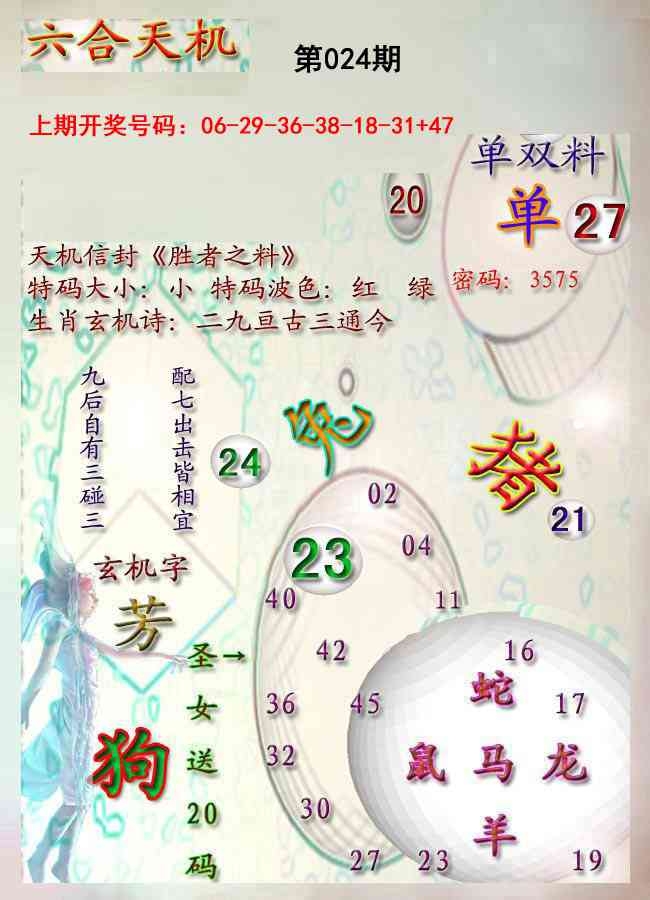 六合天机
第024期
上期开奖号码：06-29-36-38-18-31+47
单双料
20
单 27
天机信封《胜者之料》
特码大小：小 特码波色：红 绿
密码：3575
生肖玄机诗：二九亘古三通今
配七出击皆相宜
九后自有三碰三
24
兔
猪
21
02
23
04
40
11
玄机字
芳
圣女送20码
→
42
16
蛇
36
45
17
狗
32
鼠 马 龙
30
羊
27
23
19